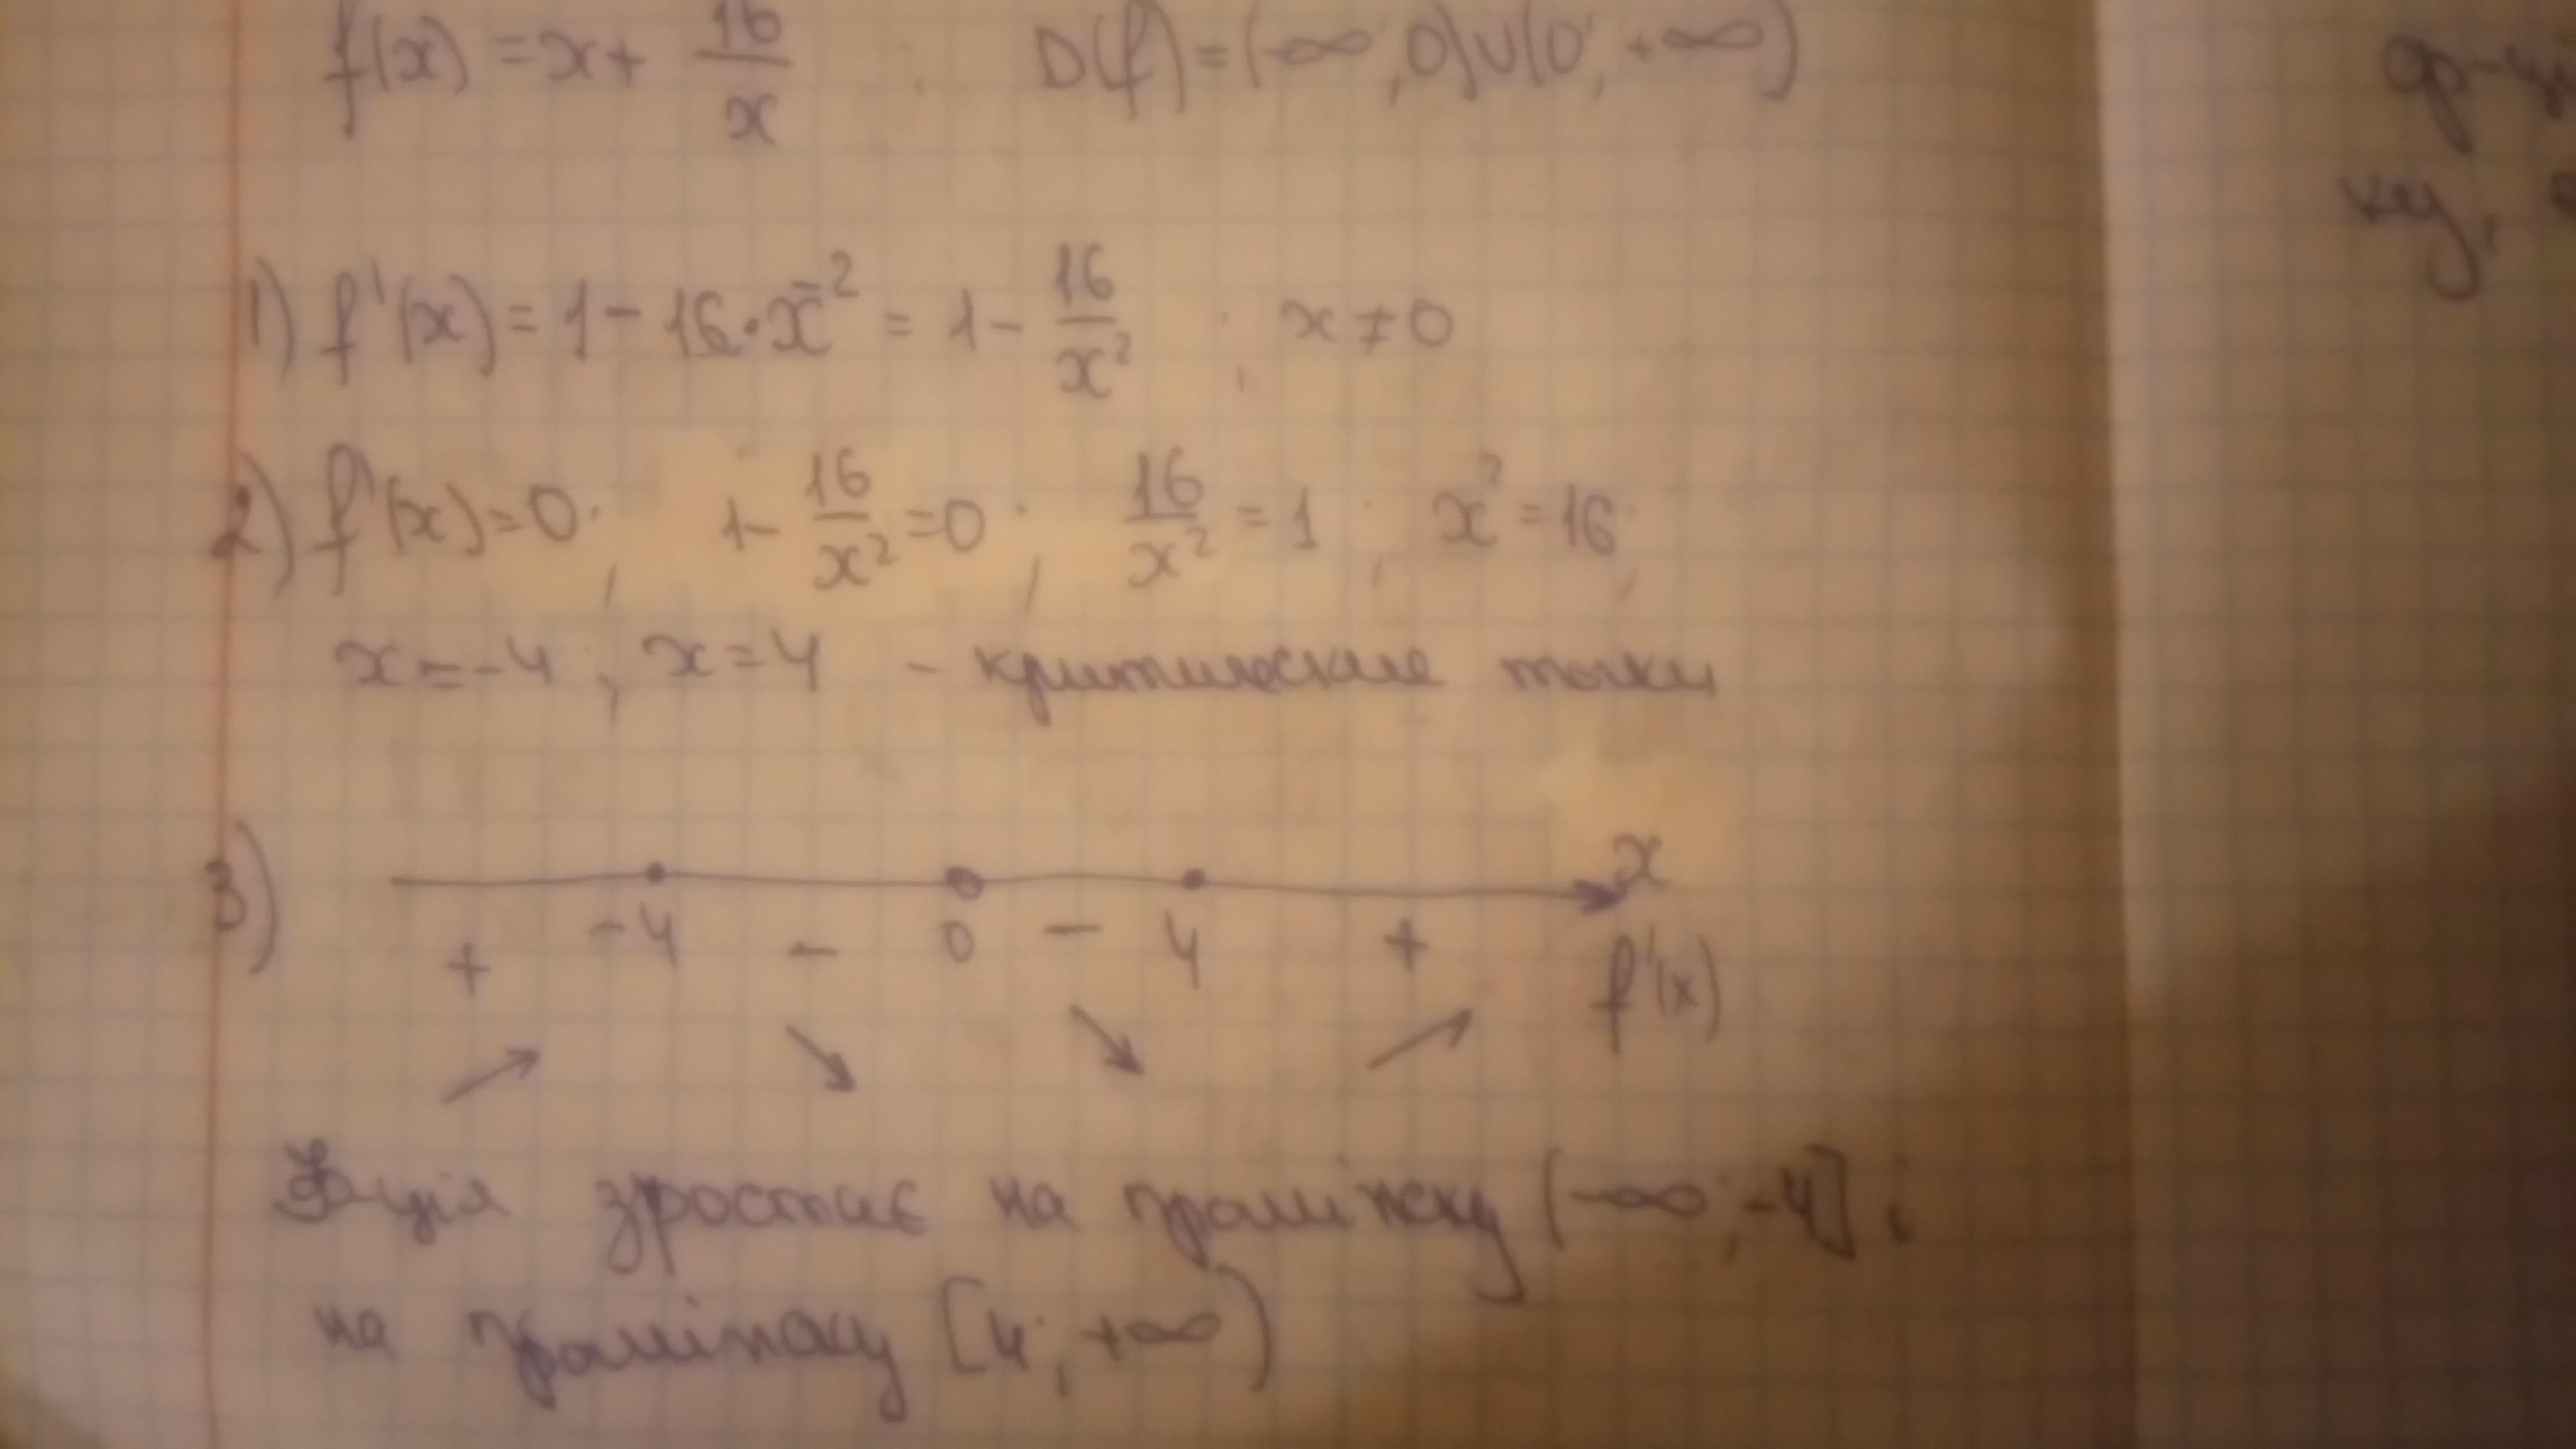 f(x) = x + 16/x ; D(f) = (-∞; 0) ∪ (0; +∞)
1) f'(x) = 1 - 16 · x⁻² = 1 - 16/x² ; x ≠ 0
2) f'(x) = 0; 1 - 16/x² = 0; 16/x² = 1; x² = 16;
x = -4; x = 4 - критические точки
3) x
+ -4 - 0 - 4 + f'(x)
зростає на проміжку (-∞; -4] і
на проміжку [4; +∞)
ку,